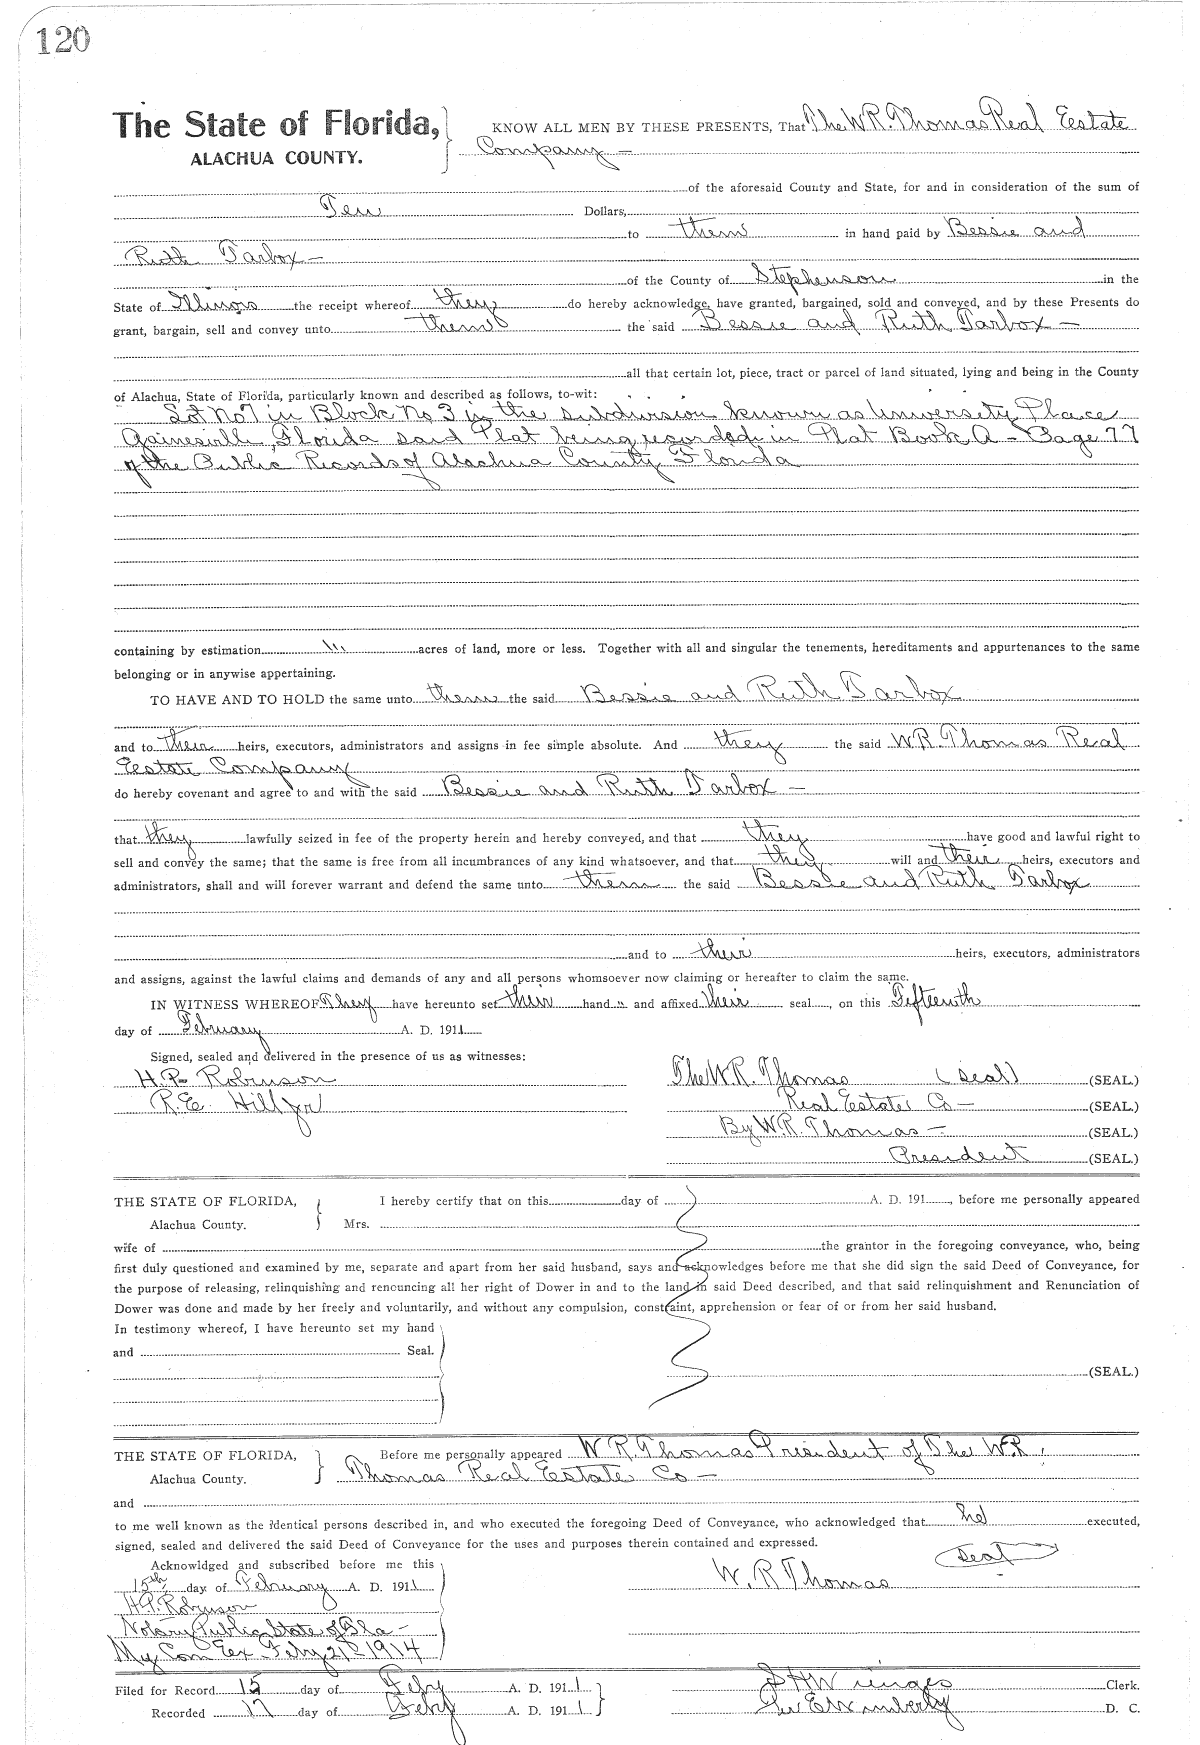 120
The State of Florida,
ALACHUA COUNTY.
KNOW ALL MEN BY THESE PRESENTS, That The W.R. Thomas Real Estate
Company —
of the aforesaid County and State, for and in consideration of the sum of
Ten Dollars,
to them in hand paid by Bessie and
Ruth Tarbox —
of the County of Stephenson in the
State of Illinois the receipt whereof they do hereby acknowledge, have granted, bargained, sold and conveyed, and by these Presents do
grant, bargain, sell and convey unto them the said Bessie and Ruth Tarbox —
all that certain lot, piece, tract or parcel of land situated, lying and being in the County
of Alachua, State of Florida, particularly known and described as follows, to-wit:
Lot No 7 in Block No 3 in the subdivision known as University Place
Gainesville, Florida said Plat being recorded in Plat Book A - Page 77
of the Public Records of Alachua County Florida
containing by estimation acres of land, more or less. Together with all and singular the tenements, hereditaments and appurtenances to the same
belonging or in anywise appertaining.
TO HAVE AND TO HOLD the same unto them the said Bessie and Ruth Tarbox
and to their heirs, executors, administrators and assigns in fee simple absolute. And they the said W.R. Thomas Real
Estate Company
do hereby covenant and agree to and with the said Bessie and Ruth Tarbox —
that they lawfully seized in fee of the property herein and hereby conveyed, and that they have good and lawful right to
sell and convey the same; that the same is free from all incumbrances of any kind whatsoever, and that they will and their heirs, executors and
administrators, shall and will forever warrant and defend the same unto them the said Bessie and Ruth Tarbox
and to their heirs, executors, administrators
and assigns, against the lawful claims and demands of any and all persons whomsoever now claiming or hereafter to claim the same.
IN WITNESS WHEREOF They have hereunto set their hand s and affixed their seal, on this Fifteenth
day of February A. D. 1911
Signed, sealed and delivered in the presence of us as witnesses:
H.P. Robinson
R.E. Hill Jr
The W.R. Thomas (Seal) (SEAL.)
Real Estate Co — (SEAL.)
By W.R. Thomas — (SEAL.)
President (SEAL.)
THE STATE OF FLORIDA,
Alachua County.
I hereby certify that on this day of A. D. 191, before me personally appeared
Mrs.
wife of the grantor in the foregoing conveyance, who, being
first duly questioned and examined by me, separate and apart from her said husband, says and acknowledges before me that she did sign the said Deed of Conveyance, for
the purpose of releasing, relinquishing and renouncing all her right of Dower in and to the land in said Deed described, and that said relinquishment and Renunciation of
Dower was done and made by her freely and voluntarily, and without any compulsion, constraint, apprehension or fear of or from her said husband.
In testimony whereof, I have hereunto set my hand
and Seal.
(SEAL.)
THE STATE OF FLORIDA,
Alachua County.
Before me personally appeared W.R. Thomas President of The W.R.
Thomas Real Estate Co —
and
to me well known as the identical persons described in, and who executed the foregoing Deed of Conveyance, who acknowledged that he executed,
signed, sealed and delivered the said Deed of Conveyance for the uses and purposes therein contained and expressed.
Acknowldged and subscribed before me this
15th day of February A. D. 1911
H.P. Robinson
Notary Public State of Fla —
My Com Ex Feby 21st 1914
W. R Thomas
Seal
Filed for Record 15 day of Feby A. D. 1911
Recorded 17 day of Feby A. D. 1911
S H Wienges Clerk.
Geo E Wimberly D. C.